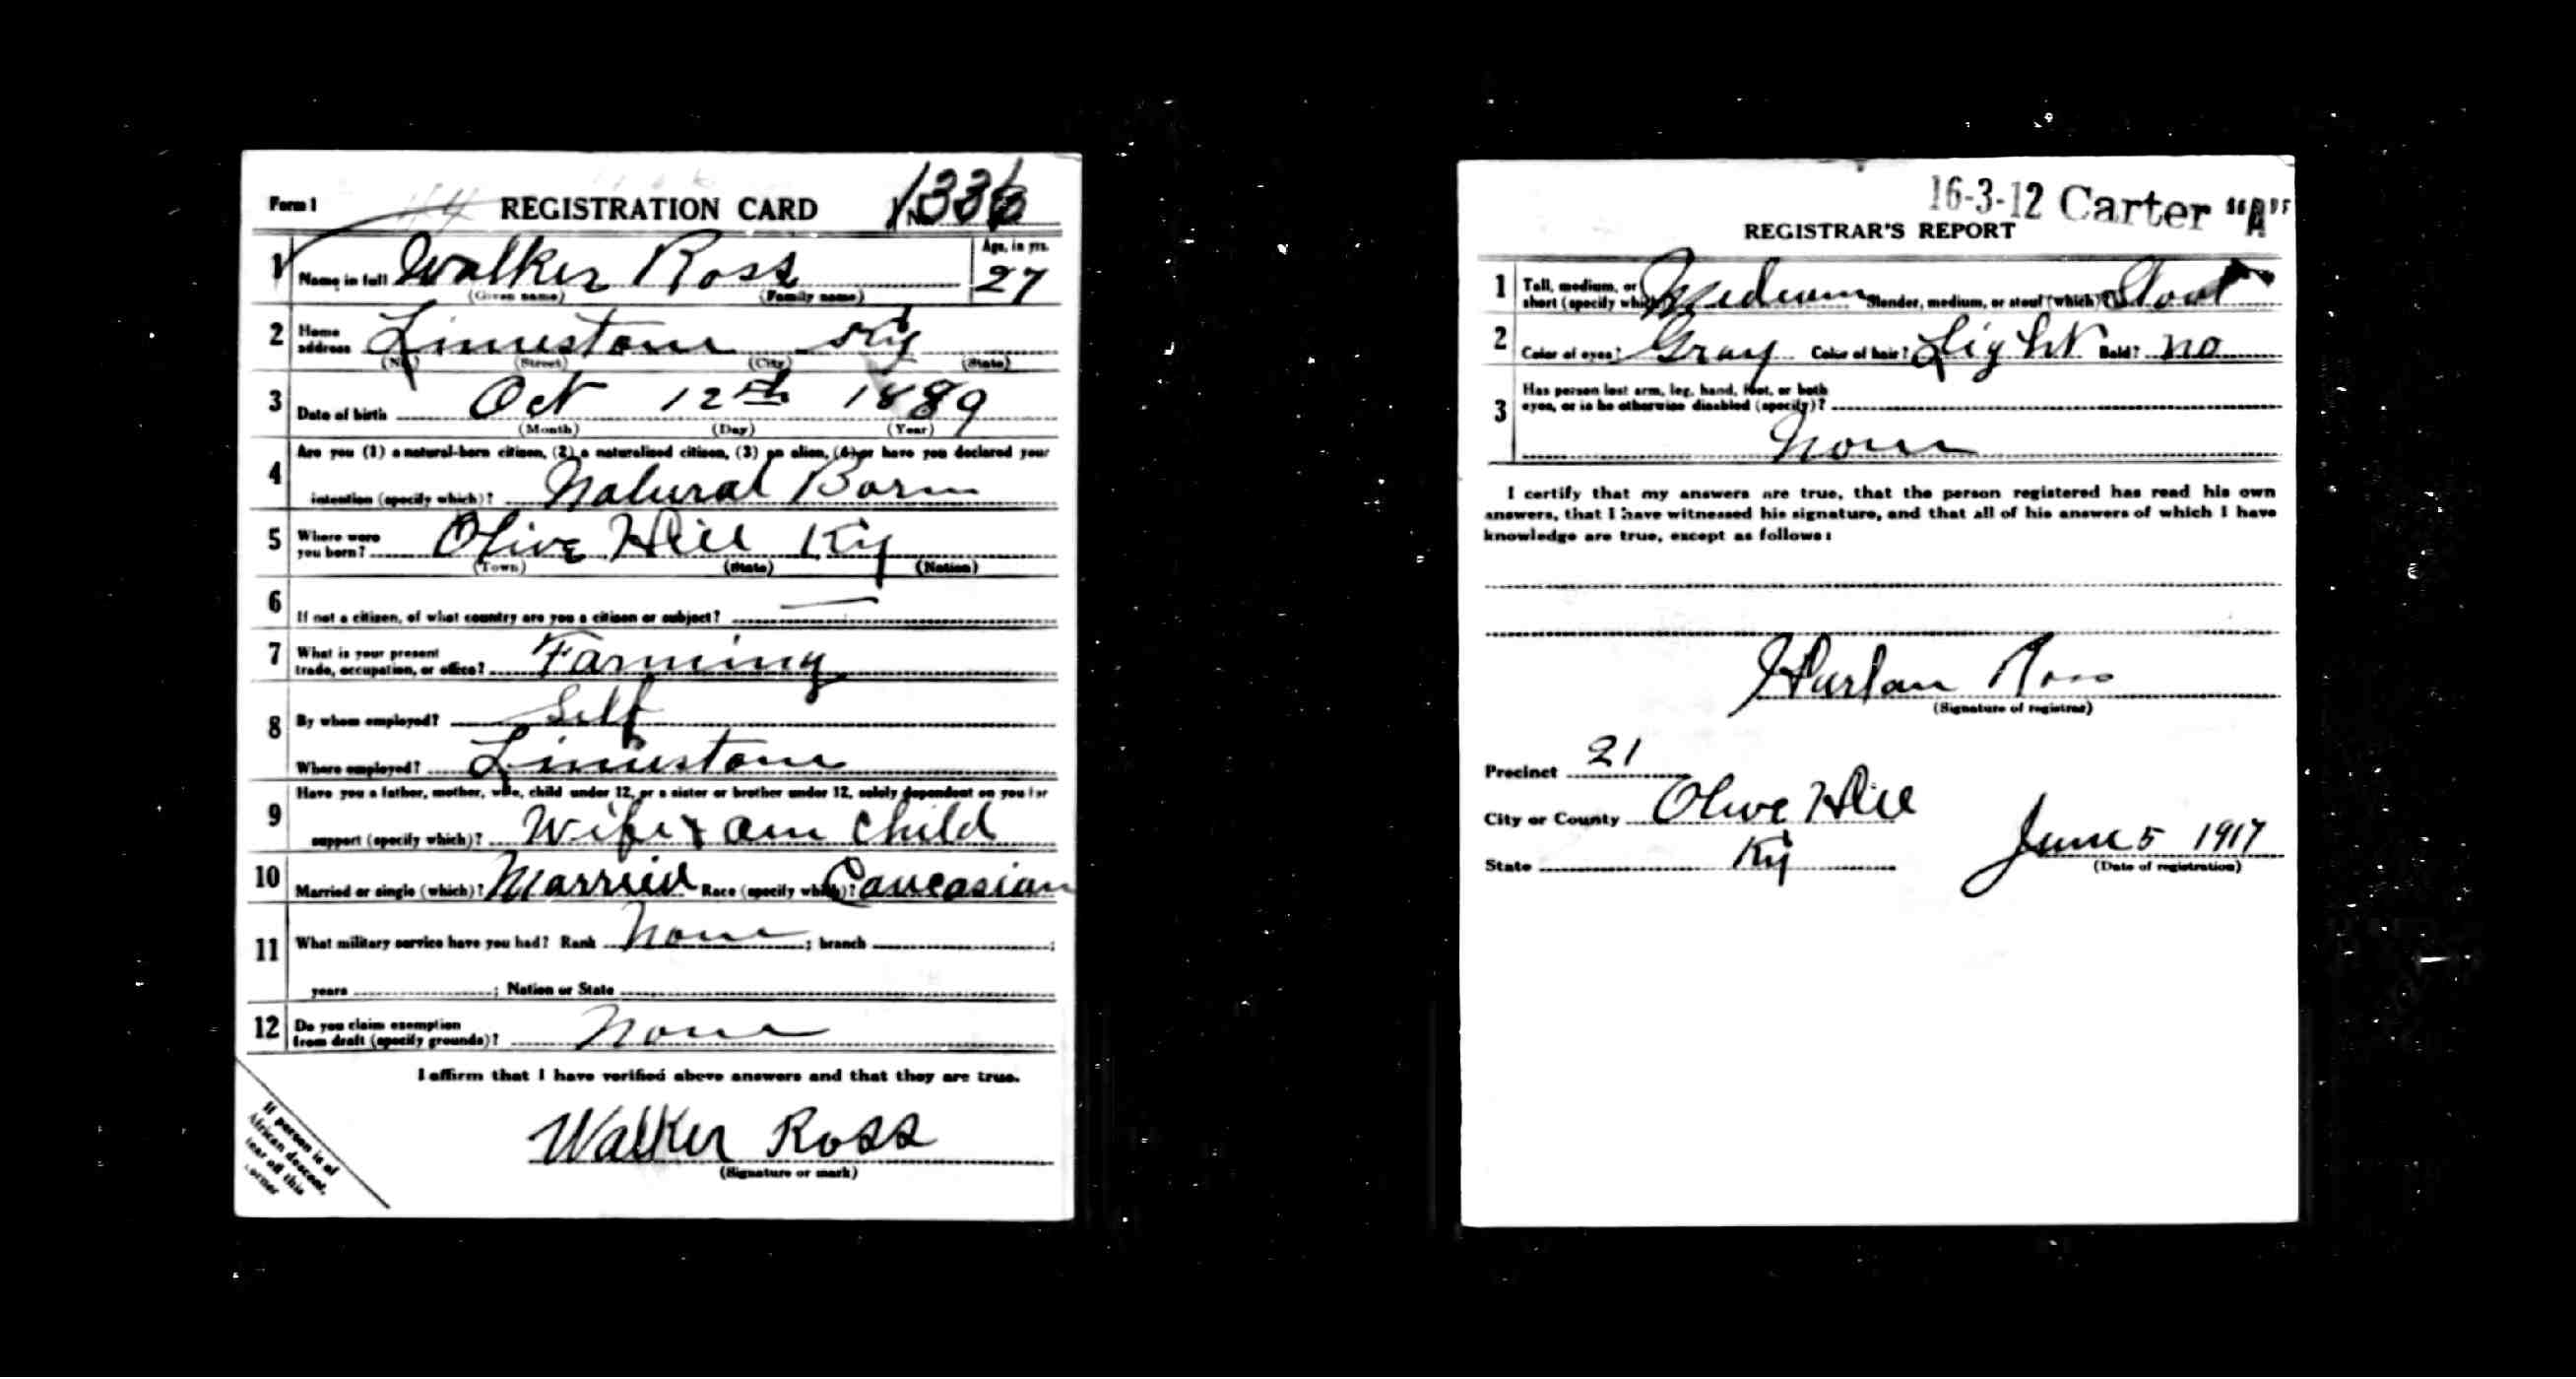 Form 1 REGISTRATION CARD No.
1 Name in full Walker Ross Age, in yrs. 27
(Given name) (Family name)
2 Home address Limestone Ky
(No.) (Street) (City) (State)
3 Date of birth Oct 12th 1889
(Month) (Day) (Year)
4 Are you (1) a natural-born citizen, (2) a naturalized citizen, (3) an alien, (4) or have you declared your
intention (specify which)? Natural Born
5 Where were you born? Olive Hill Ky
(Town) (State) (Nation)
6 If not a citizen, of what country are you a citizen or subject? —
7 What is your present
trade, occupation, or office? Farming
8 By whom employed? Self
Where employed? Limestone
9 Have you a father, mother, wife, child under 12, or a sister or brother under 12, solely dependent on you for
support (specify which)? Wife + child
10 Married or single (which)? Married Race (specify which)? Caucasian
11 What military service have you had? Rank None ; branch ;
years ; Nation or State
12 Do you claim exemption
from draft (specify grounds)? None
I affirm that I have verified above answers and that they are true.
Walker Ross
(Signature or mark)
If person is of
African descent,
tear off this
corner
16-3-12 Carter "A"
REGISTRAR'S REPORT
1 Tall, medium, or
short (specify which)? Medium Slender, medium, or stout (which)? Stout
2 Color of eyes? Gray Color of hair? Light Bald? no
3 Has person lost arm, leg, hand, foot, or both
eyes, or is he otherwise disabled (specify)?
None
I certify that my answers are true, that the person registered has read his own
answers, that I have witnessed his signature, and that all of his answers of which I have
knowledge are true, except as follows:
Harlan Ross
(Signature of registrar)
Precinct 21
City or County Olive Hill
State Ky June 5 1917
(Date of registration)